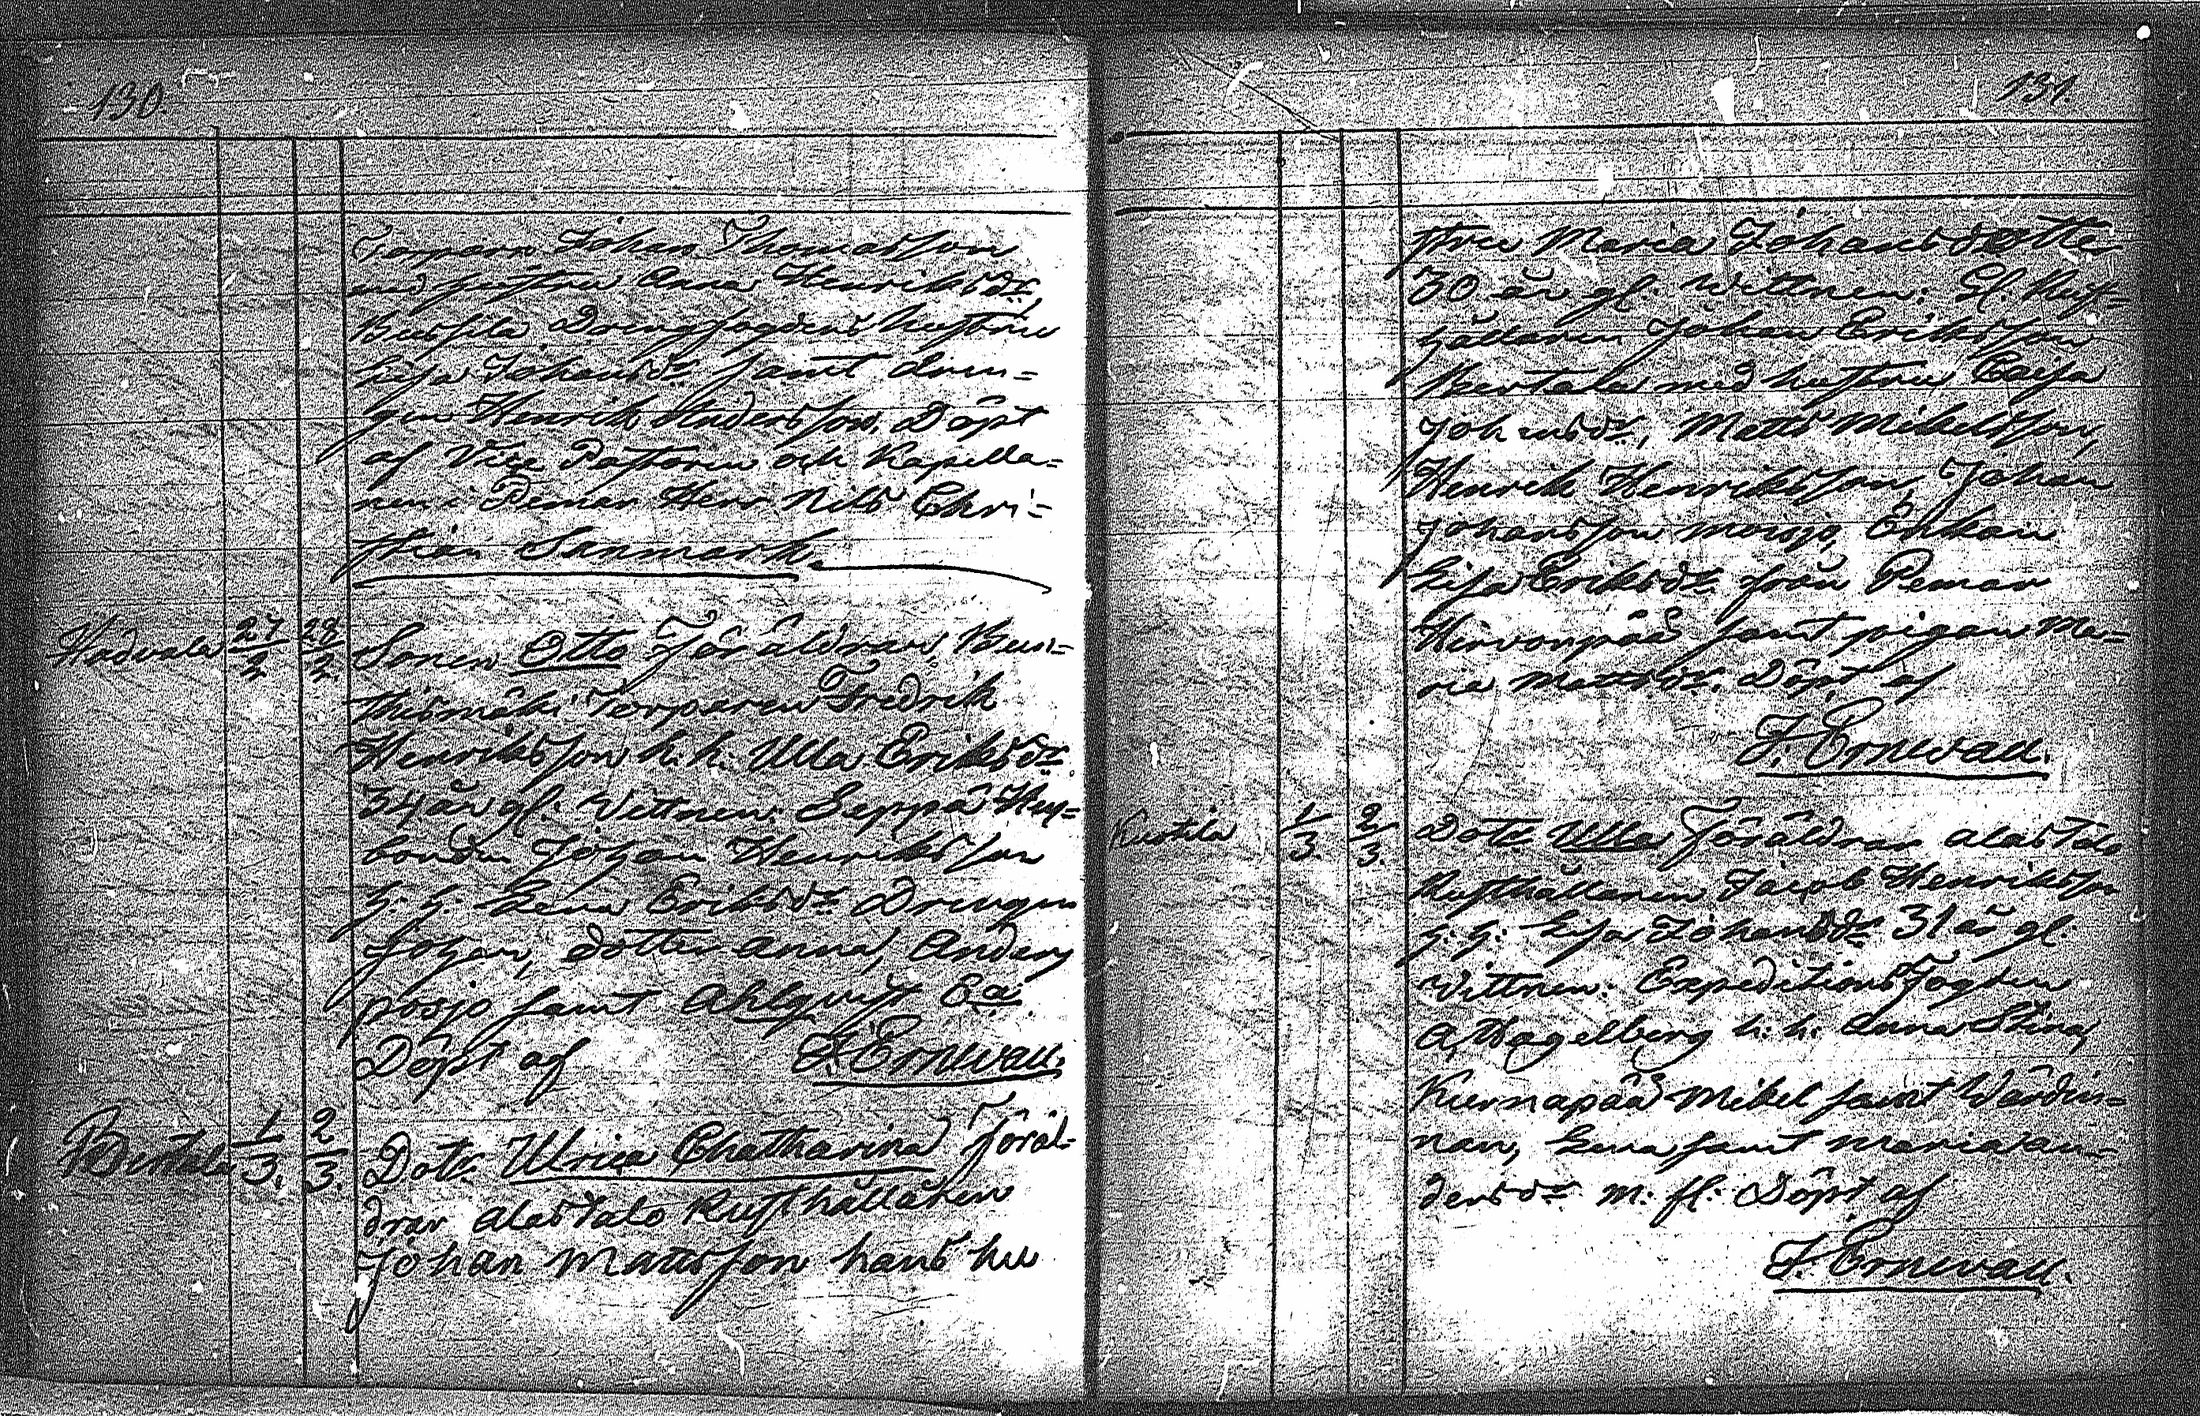 130.
Torparn Johan Thomasson
med hustru Anna Henriksdr,
Bussila Drengfogdens hustru
Lisa Johansdr samt dren=
gen Henrik Andersson. Döpt
af Vice Pastoren och Kapella=
nen i Pemar Herr Nils Chri=
stian Sanmark.
Hadvala 27/2 28/2 Sonen Otto Föräldrar,
thismäki Torparen Fredrik
Henriksson h. h. Ulla Eriksdr
34 år gl. Vittnen: Seppä
bonden Johan Henriksson
h. h. Lena Eriksdr Drengen
Johan, dotter Anna, Anders
posjo samt Ahlqvist
Döpt af F. Ernwall.
Bertala 1/3. 2/3. Dotr. Ulrica Chatharina Föräl=
drar Alastalo Rusthållaren
Johan Mattsson hans hu
131.
stru Maria Johansdotter
30 år gl. Wittnen: Gl. Rust=
hållaren Johan Eriksson
Bertala med hustru Caisa
Johansdr, Matts Mikelsson,
Henrik Henriksson, Johan
Johansson Enkan
Lisa Eriksdr från Pemar
Hirvonpää samt pigan Ma=
ria Mattsdr. Döpt af
F. Ernwall.
Kustila 1/3. 2/3. Dotr Ulla Föräldrar Alastalo
Rusthållaren Jacob Henriksson
h. h. Lisa Johansdr 31 år gl.
Wittnen. Expeditions Fogden
A, Hagelberg h: h: Anna Stina,
Kiernapää Mikel samt Wärdin=
nan, Lena samt Maria An=
dersdr m: fl: Döpt af
F. Ernwall.